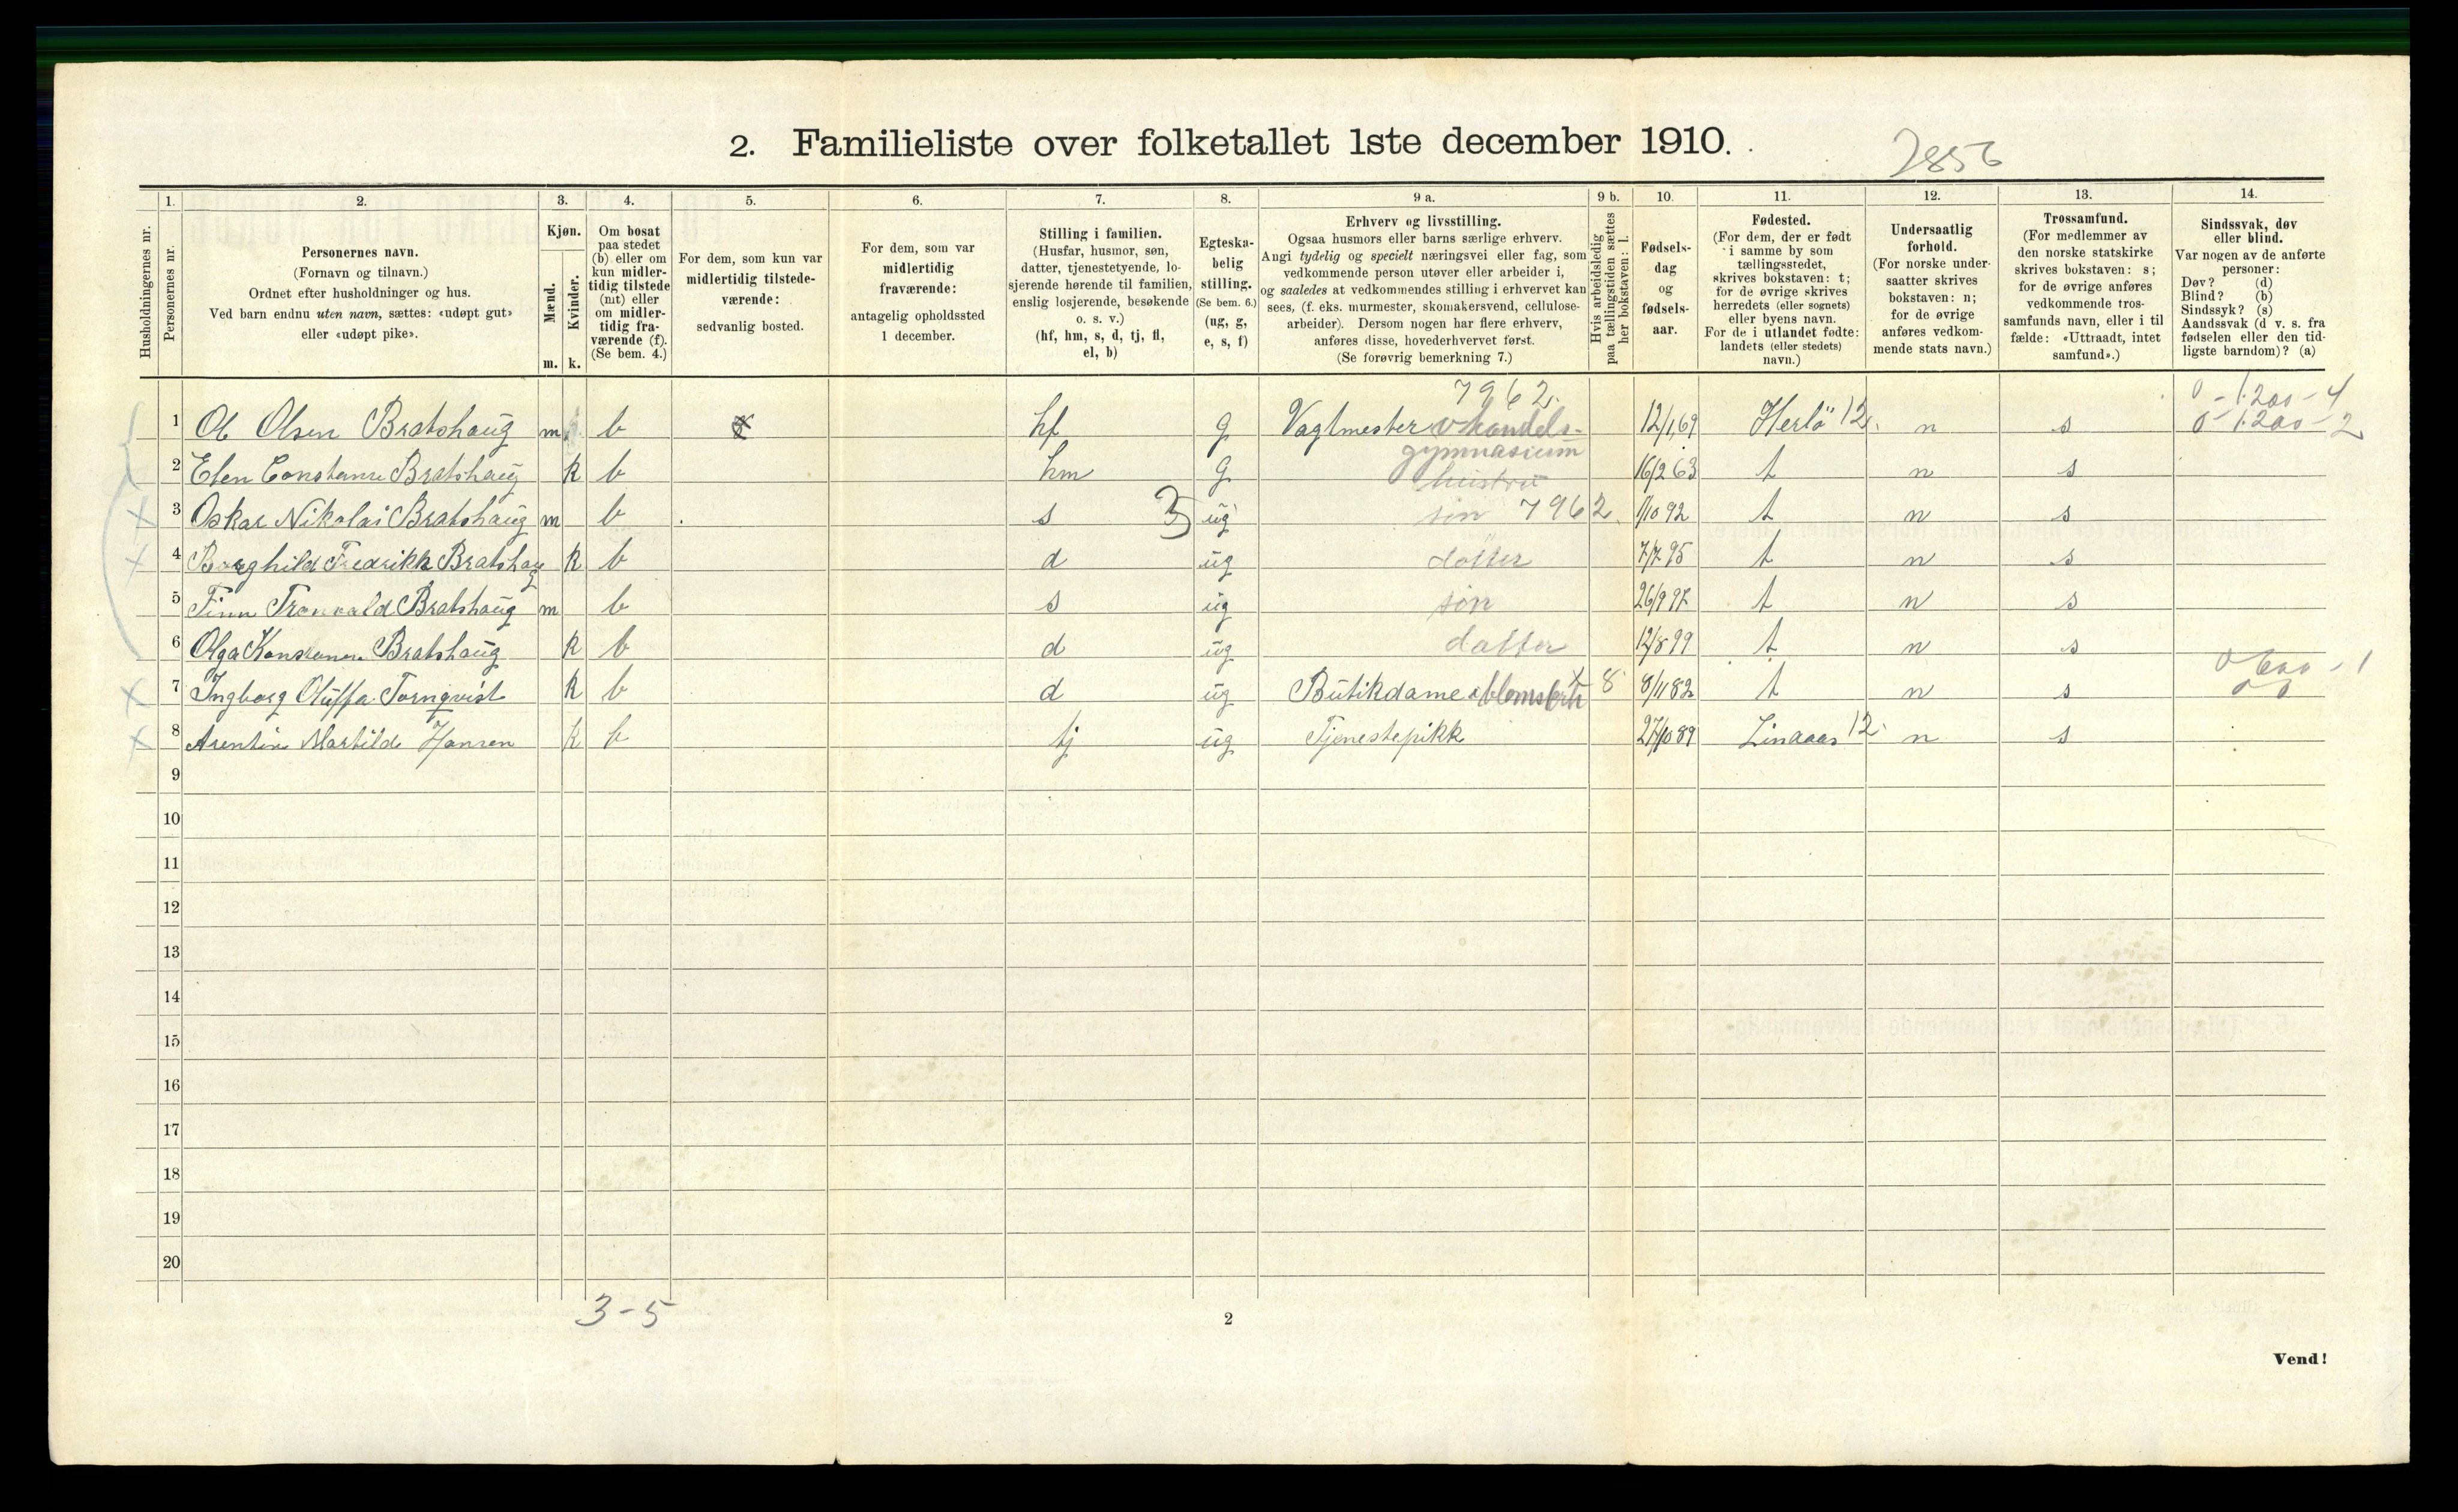 2. Familieliste over folketallet 1ste december 1910.
2856
1. 2. 3. 4. 5. 6. 7. 8. 9 a. 9 b. 10. 11. 12. 13. 14.
Husholdningernes nr.
Personernes nr.
Personernes navn.
(Fornavn og tilnavn.)
Ordnet efter husholdninger og hus.
Ved barn endnu uten navn, sættes: «udøpt gut»
eller «udøpt pike».
Kjøn.
Mænd.
Kvinder.
m. k.
Om bosat
paa stedet
(b) eller om
kun midler-
tidig tilstede
(mt) eller
om midler-
tidig fra-
værende (f).
(Se bem. 4.)
For dem, som kun var
midlertidig tilstede-
værende:
sedvanlig bosted.
For dem, som var
midlertidig
fraværende:
antagelig opholdssted
1 december.
Stilling i familien.
(Husfar, husmor, søn,
datter, tjenestetyende, lo-
sjerende hørende til familien,
enslig losjerende, besøkende
o. s. v.)
(hf, hm, s, d, tj, fl,
el, b)
Egteska-
belig
stilling.
(Se bem. 6.)
(ug, g,
e, s, f)
Erhverv og livsstilling.
Ogsaa husmors eller barns særlige erhverv.
Angi tydelig og specielt næringsvei eller fag, som
vedkommende person utøver eller arbeider i,
og saaledes at vedkommendes stilling i erhvervet kan
sees, (f. eks. murmester, skomakersvend, cellulose-
arbeider). Dersom nogen har flere erhverv,
anføres disse, hovederhvervet først.
(Se forøvrig bemerkning 7.)
Hvis arbeidsledig
paa tællingstiden sættes
her bokstaven: l.
Fødsels-
dag
og
fødsels-
aar.
Fødested.
(For dem, der er født
i samme by som
tællingsstedet,
skrives bokstaven: t;
for de øvrige skrives
herredets (eller sognets)
eller byens navn.
For de i utlandet fødte:
landets (eller stedets)
navn.)
Undersaatlig
forhold.
(For norske under-
saatter skrives
bokstaven: n;
for de øvrige
anføres vedkom-
mende stats navn.)
Trossamfund.
(For medlemmer av
den norske statskirke
skrives bokstaven: s;
for de øvrige anføres
vedkommende tros-
samfunds navn, eller i til
fælde: «Uttraadt, intet
samfund».)
Sindssvak, døv
eller blind.
Var nogen av de anførte
personer:
Døv? (d)
Blind? (b)
Sindssyk? (s)
Aandssvak (d v. s. fra
fødselen eller den tid-
ligste barndom)? (a)
7962. 0-1200-4
1 Ol Olsen Bratshaug m. b hf g Vagtmester v handels- 12/1 69 Herlö 12. n s 0-1200-2
gymnasium
2 Elen Constanse Bratshaug k b hm g hustru 16/2 63 t n s
3 Oskar Nikolai Bratshaug m b s 3 ug søn 7962. 1/10 92 t n s
4 Borghild Fredrikke Bratshaug k b d ug datter 7/7 95 t n s
5 Finn Tronvald Bratshaug m b s ug søn 26/9 97 t n s
6 Olga Konstanse Bratshaug k b d ug datter 12/8 99 t n s
7 Ingborg Oluffa Tornqvist k b d ug Butikdame i blomsterb 8 8/11 82 t n s 0-600-1
8 Arentine Martilde Hansen k b tj ug Tjenestepikk 27/10 89 Lindaas 12. n s
9
10
11
12
13
14
15
16
17
18
19
20
3-5
2
Vend!